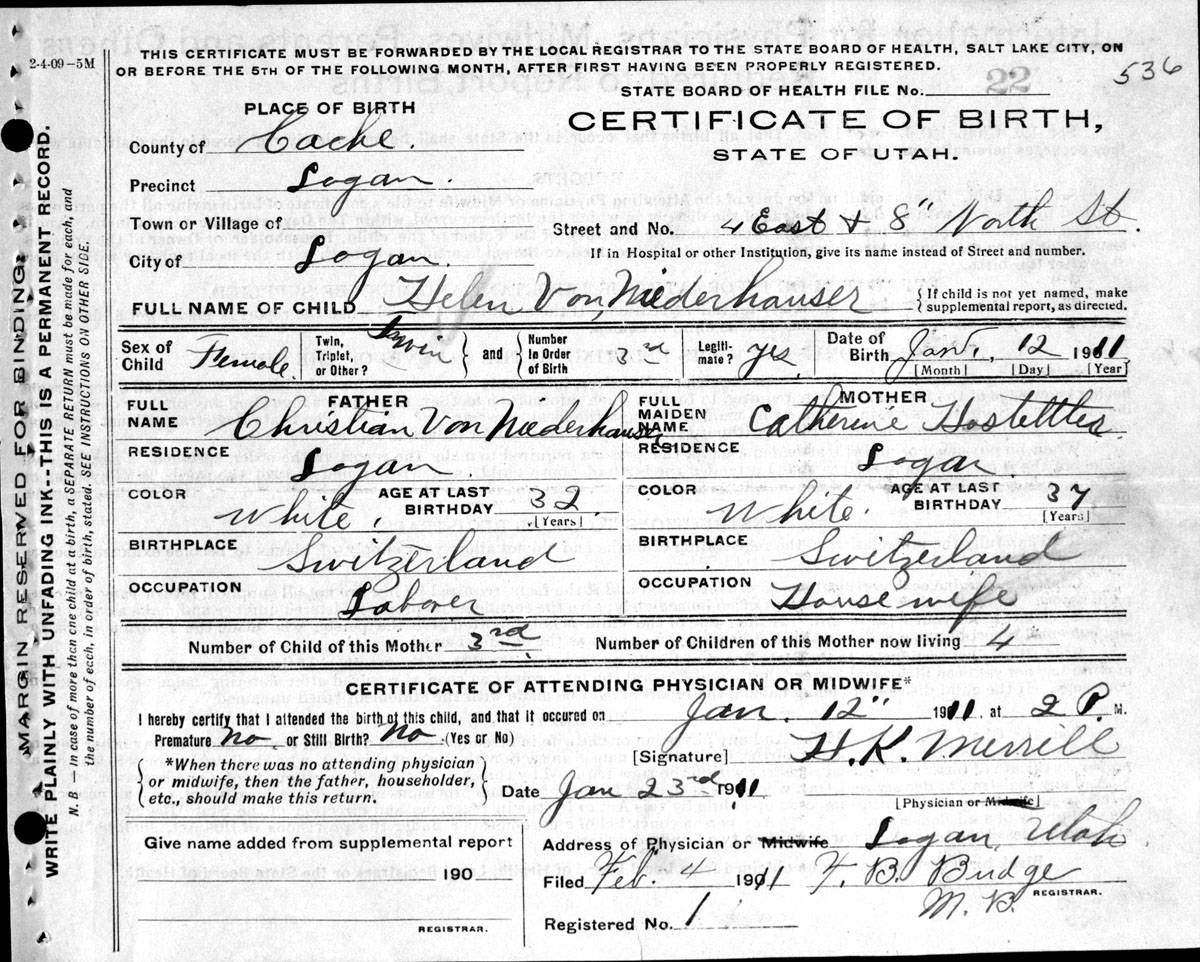 THIS CERTIFICATE MUST BE FORWARDED BY THE LOCAL REGISTRAR TO THE STATE BOARD OF HEALTH, SALT LAKE CITY, ON
2-4-09-5M
OR BEFORE THE 5TH OF THE FOLLOWING MONTH, AFTER FIRST HAVING BEEN PROPERLY REGISTERED.
22
536
STATE BOARD OF HEALTH FILE No.
PLACE OF BIRTH
CERTIFICATE OF BIRTH,
County of Cache.
STATE OF UTAH.
Precinct Logan.
Town or Village of
Street and No. 4 East & 8" North St.
City of Logan.
If in Hospital or other Institution, give its name instead of Street and number.
FULL NAME OF CHILD Helen Von Niederhauser { If child is not yet named, make
supplemental report, as directed.
Sex of Child Female. Twin, Triplet, or Other? Twin and { Number In Order of Birth 3rd Legiti-mate? yes Date of Birth Jan. 12 1911
[Month] [Day] [Year]
FATHER
FULL NAME Christian Von Niederhauser
MOTHER
FULL MAIDEN NAME Catherine Hostettler
RESIDENCE Logan
RESIDENCE Logan
COLOR White. AGE AT LAST BIRTHDAY 32 [Years]
COLOR White. AGE AT LAST BIRTHDAY 37 [Years]
BIRTHPLACE Switzerland
BIRTHPLACE Switzerland
OCCUPATION Laborer
OCCUPATION Housewife
Number of Child of this Mother 3rd Number of Children of this Mother now living 4
CERTIFICATE OF ATTENDING PHYSICIAN OR MIDWIFE*
I hereby certify that I attended the birth of this child, and that it occured on Jan. 12" 1911 at 2 P. M.
Premature No or Still Birth? No (Yes or No)
[Signature] H. K. Merrill
{ *When there was no attending physician
or midwife, then the father, householder,
etc., should make this return. }
Date Jan 23rd 1911
[Physician or Midwife]
Give name added from supplemental report
190
REGISTRAR.
Address of Physician or Midwife Logan, Utah
Filed Feb. 4 1911 F. B. Budge
M. D. REGISTRAR.
Registered No. 1
MARGIN RESERVED FOR BINDING.
WRITE PLAINLY WITH UNFADING INK--THIS IS A PERMANENT RECORD.
N. B - In case of more than one child at a birth, a SEPARATE RETURN must be made for each, and
the number of each, in order of birth, stated. SEE INSTRUCTIONS ON OTHER SIDE.